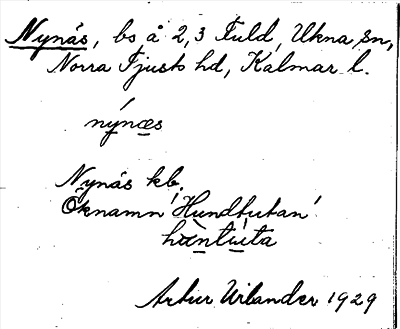 Nynäs, bs å 2,3 Fuld, Ukna sn,
Norra Tjusts hd, Kalmar l.
nýnæs
Nynäs kb.
Öknamn 'Hundtutan'
Artur Wilander 1929